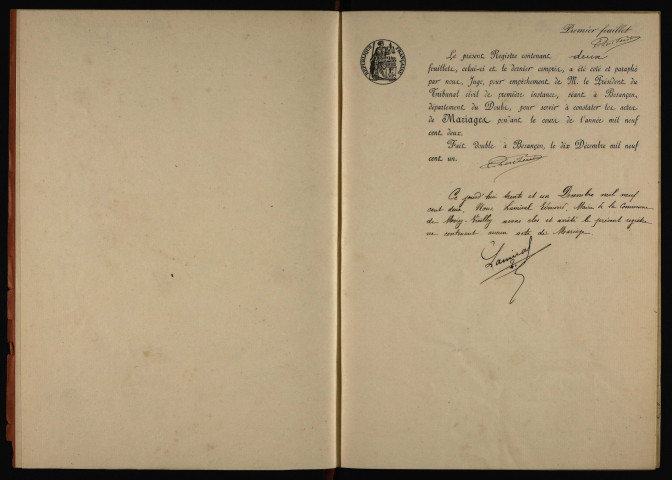 Premier feuillet
RÉPUBLIQUE FRANÇAISE
Le présent Registre contenant deux
feuillets, celui-ci et le dernier compris, a été coté et paraphé
par nous, Juge, pour empêchement de M. le Président du
Tribunal civil de première instance, séant à Besançon,
département du Doubs, pour servir à constater les actes
de Mariages pendant le cours de l'année mil neuf
cent deux.
Fait double à Besançon, le dix Décembre mil neuf
cent un.
Ce jourd'hui trente et un Décembre mil neuf
cent deux, Nous Lamiral, Maire de la Commune
de Vieilley avons clos et arrêté le présent registre
ne contenant aucun acte de Mariage.
Lamiral